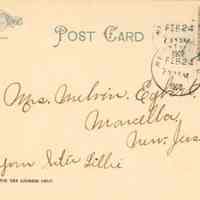 POST CARD
FEB 24
FEB 24
Mrs. Melvin
Marcella
New Jers
from Sister Lillie
THE ADDRESS ONLY.